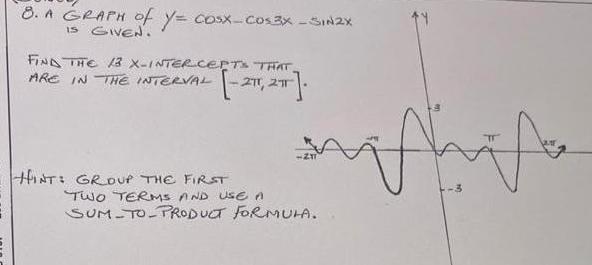 8. A GRAPH of y= cosx-cos3x-SIN2X
IS GIVEN.
FIND THE 13 X-INTERCEPTS THAT
ARE IN THE INTERVAL [-2π, 2π].
HINT: GROUP THE FIRST
TWO TERMS AND USE A
SUM-TO-PRODUCT FORMULA.
y
3
-2π
-π
π
2π
-3